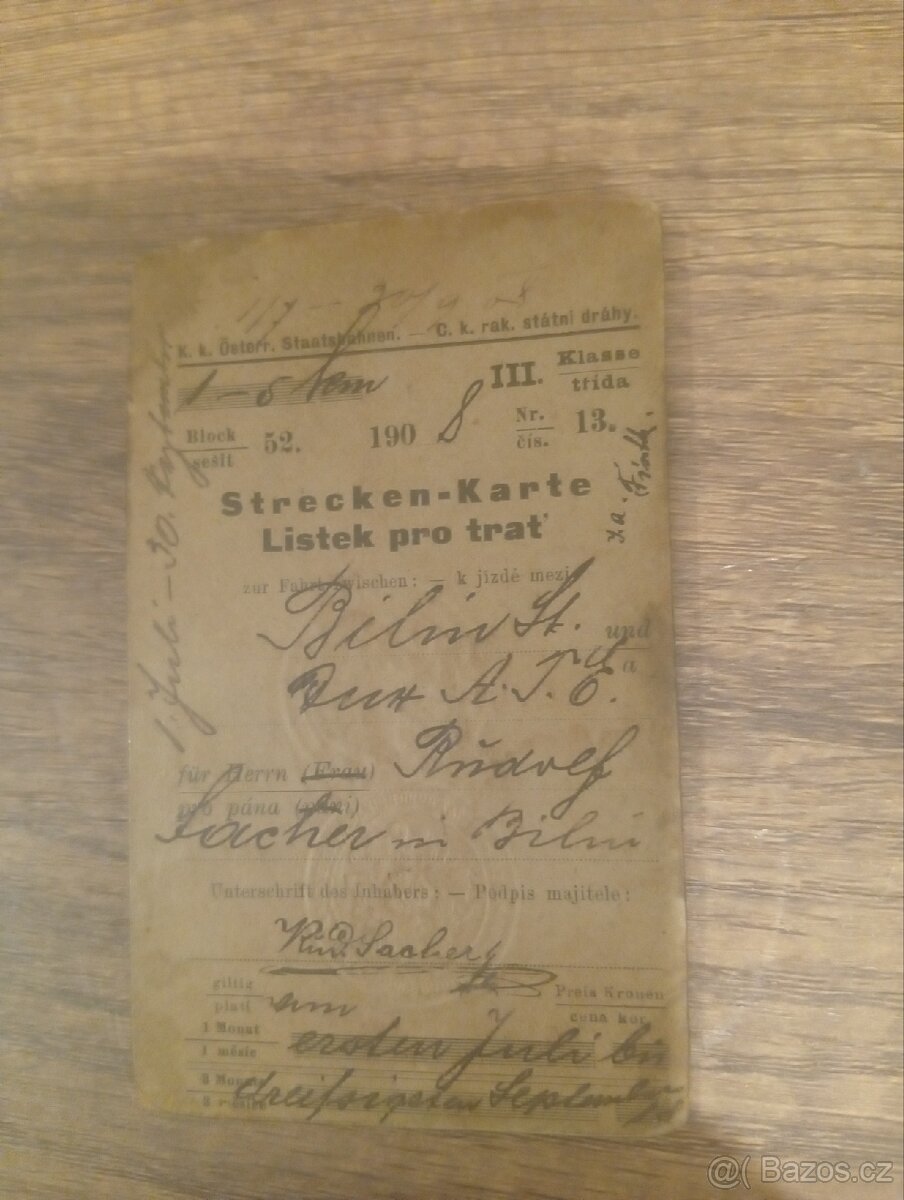 K. k. Österr. Staatsbahnen. — C. k. rak. státní dráhy.
III. Klasse
třída
Block
sešit
52.
190 8
Nr.
čís.
13.
Strecken-Karte
Lístek pro trať
zur Fahrt zwischen: — k jízdě mezi
Bilin St. und
a
Dux A.T.E.
für Herrn (Frau) Rudolf
pro pána (paní)
Sacher in Bilin
Unterschrift des Inhabers: — Podpis majitele:
Rud. Sacher
giltig
platí
vom
Preis Kronen
cena kor.
1 Monat
1 měsíc
ersten Juli bis
3 Monate
dreissigsten September
1. Juli – 30. September
@( Bazos.cz